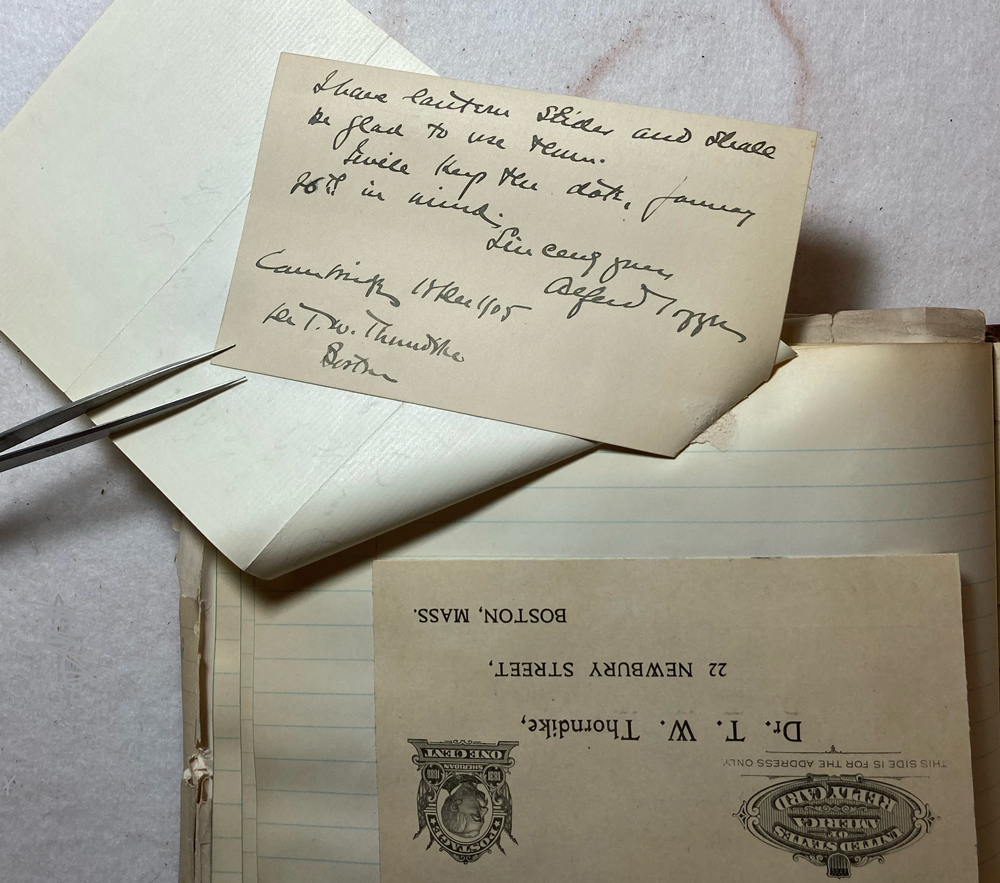 I have lantern slides and shall
be glad to use them.
I will keep the date, January
26th in mind.
Sincerely yours
Alfred Tozzer
Cambridge 18 Dec 1905
Dr. T. W. Thorndike
Boston
UNITED STATES
OF
AMERICA
REPLY CARD
THIS SIDE IS FOR THE ADDRESS ONLY
POSTAGE
1831 SHERIDAN 1888
ONE CENT
Dr. T. W. Thorndike,
22 NEWBURY STREET,
BOSTON, MASS.